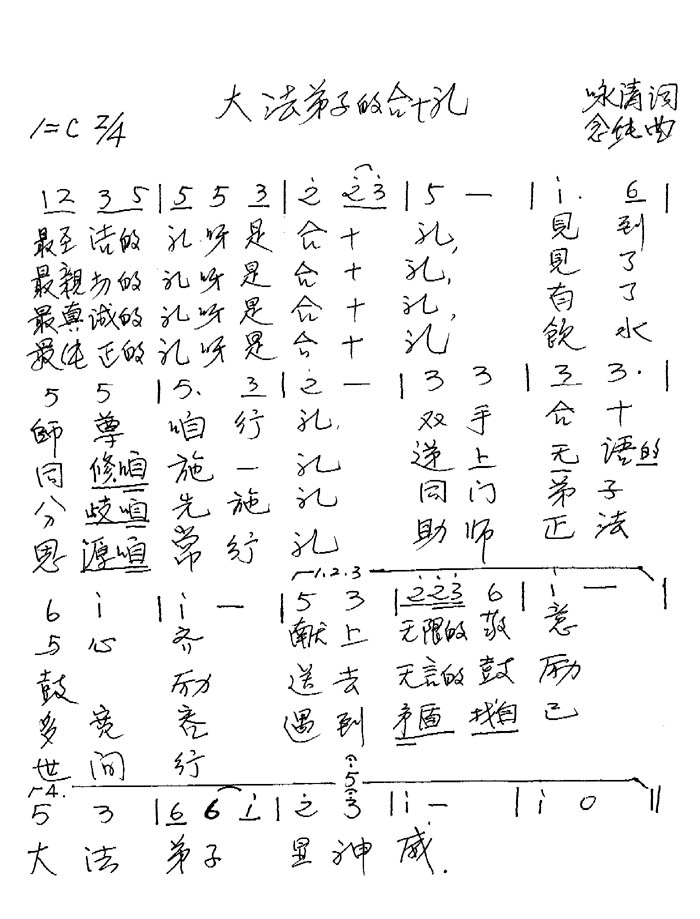 大法弟子的合十礼
咏清词
1=C 2/4
念纯曲
1 2 3 5 | 5 5 3 | 2 2 3 | 5 — | i. 6 |
最圣洁的 礼呀是 合十 礼, 見到
最親切的 礼呀是 合十 礼, 見了
最真诚的 礼呀是 合十 礼, 有了
最纯正的 礼呀是 合十 礼 飲水
5 5 | 5. 3 | 2 — | 3 3 | 3 3. |
師尊 咱行 礼, 双手 合十
同修咱 施一 礼 递上 无语的
分歧咱 先施 礼 同门 弟子
恩源咱 常行 礼 助师 正法
1.2.3
6 i | i — | 5 3 | 2 2 3 6 | i — |
与心 齐 献上 无限的敬 意
鼓 励 送去 无言的鼓 励
多宽 容 遇到 矛盾找自 己
世间 行
4. 5
5 3 | 6 6 i | 2 3 | i — | i 0 ||
大法 弟子 显神 威.